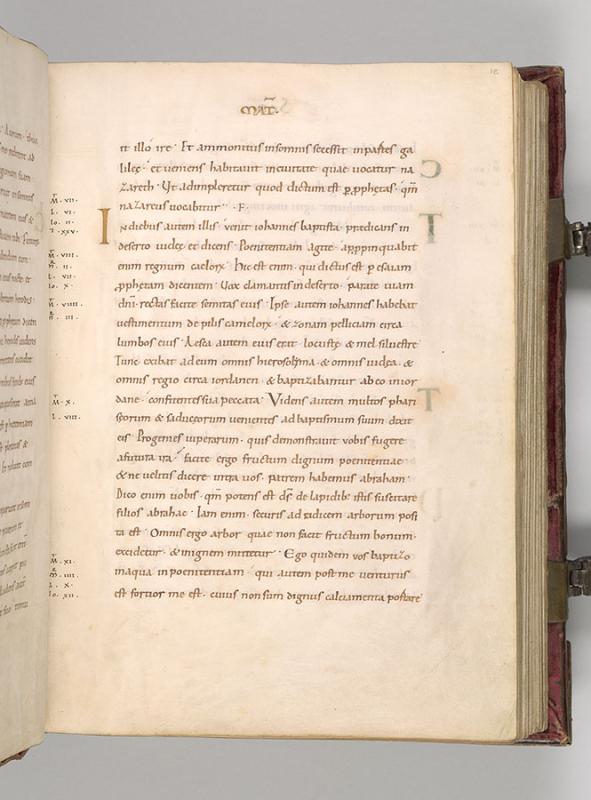 MAT̄.
it illo ire · Et ammonitus insomnis secessit inpartes ga
lileę · et veniens habitavit incivitate quae vocatur na
zareth · Ut adimpleretur quod dictum est p̱ p̱phetas · qm̄
nazareus vocabitur · F ·
In diebus autem illis · venit iohannes baptista · predicans in
deserto iudeę · et dicens · Poenitentiam agite · appropinquabit
enim regnum caeloꝝ · Hic est enim · qui dictus est p esaiam
p̱phetam dicentem · Vox clamantis in deserto · parate viam
dn̄i · rectas facite semitas eius · Ipse autem iohannes habebat
vestimentum de pilis cameloꝝ · & zonam pelliciam circa
lumbos eius · Aesca autem eius erat · locustę & mel silvestre
Tunc exibat ad eum omnis hierosolima · & omnis iudęa · &
omnis regio circa iordanen · & baptizabantur ab eo in ior
dane · confitentes sua peccata · Videns autem multos phari
sęorum & saducęorum venientes ad baptismum suum dixit
eis · Progenies viperarum · quis demonstravit vobis fugere
a futura ira · facite ergo fructum dignum poenitentiae ·
& ne velitis dicere intra vos · patrem habemus abraham ·
Dico enim vobis · qm̄ potens est ds̄ · de lapidib; istis suscitare
filios abrahae · Iam enim · securis ad radicem arborum posi
ta est · Omnis ergo arbor quae non facit fructum bonum ·
excidetur · & in ignem mittetur · Ego quidem vos baptizo
in aqua in poenitentiam · qui autem post me venturus
est fortior me est · cuius non sum dignus calciamenta portare